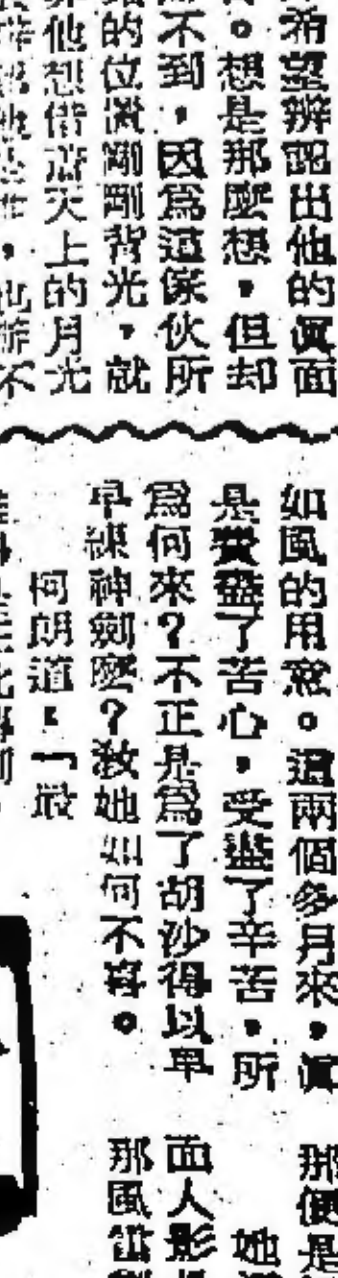 希望辨認出他的眞面
。想是那麼想,但却
不到,因爲這傢伙所
的位置剛剛背光,就
他想借着天上的月光
如風的用意。這兩個多月來,眞
是費盡了苦心,受盡了辛苦,所
爲何來?不正是爲了胡沙得以早
早練神劍麼?教她如何不喜。
柯朗道:「最
那便是
她
面人影
那風雷劍